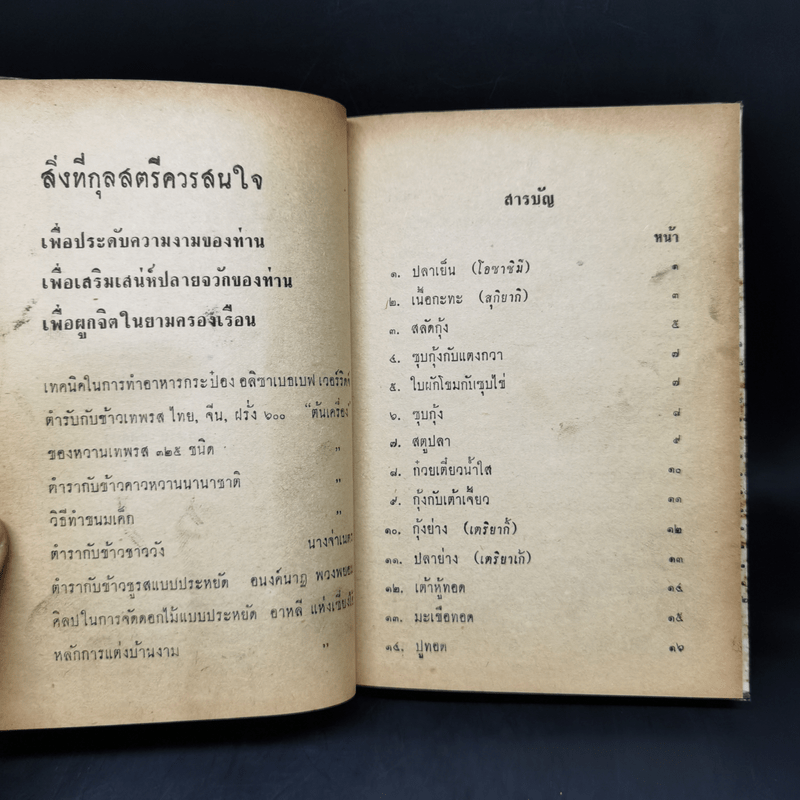 สิ่งที่กุลสตรีควรสนใจ
เพื่อประดับความงามของท่าน
เพื่อเสริมเสน่ห์ปลายจวักของท่าน
เพื่อผูกจิตในยามครองเรือน
เทคนิคในการทำอาหารกระป๋อง อลิซาเบธเบฟ เวอร์ริคค์
ตำรับกับข้าวเทพรส ไทย, จีน, ฝรั่ง ๖๐๐ "ต้นเครื่อง"
ของหวานเทพรส ๓๒๕ ชนิด "
ตำรากับข้าวคาวหวานนานาชาติ "
วิธีทำขนมเค็ก "
ตำรากับข้าวชาววัง นางจำเนตร
ตำรากับข้าวชูรสแบบประหยัด อนงค์นาฏ พวงพยอม
ศิลปในการจัดดอกไม้แบบประหยัด อาหลี แห่งเซี่ยงไฮ้
หลักการแต่งบ้านงาม "
สารบัญ
หน้า
๑. ปลาเย็น (โอซาซิมิ) ๑
๒. เนื้อกะทะ (สุกิยากิ) ๓
๓. สลัดกุ้ง ๕
๔. ซุบกุ้งกับแตงกวา ๗
๕. ใบผักโขมกับซุบไข่ ๗
๖. ซุบกุ้ง ๘
๗. สตูปลา ๙
๘. ก๋วยเตี๋ยวน้ำใส ๑๐
๙. กุ้งกับเต้าเจี้ยว ๑๑
๑๐. กุ้งย่าง (เตริยากี้) ๑๒
๑๑. ปลาย่าง (เตริยาเก้) ๑๓
๑๒. เต้าหู้ทอด ๑๔
๑๓. มะเขือทอด ๑๕
๑๔. ปูทอด ๑๖